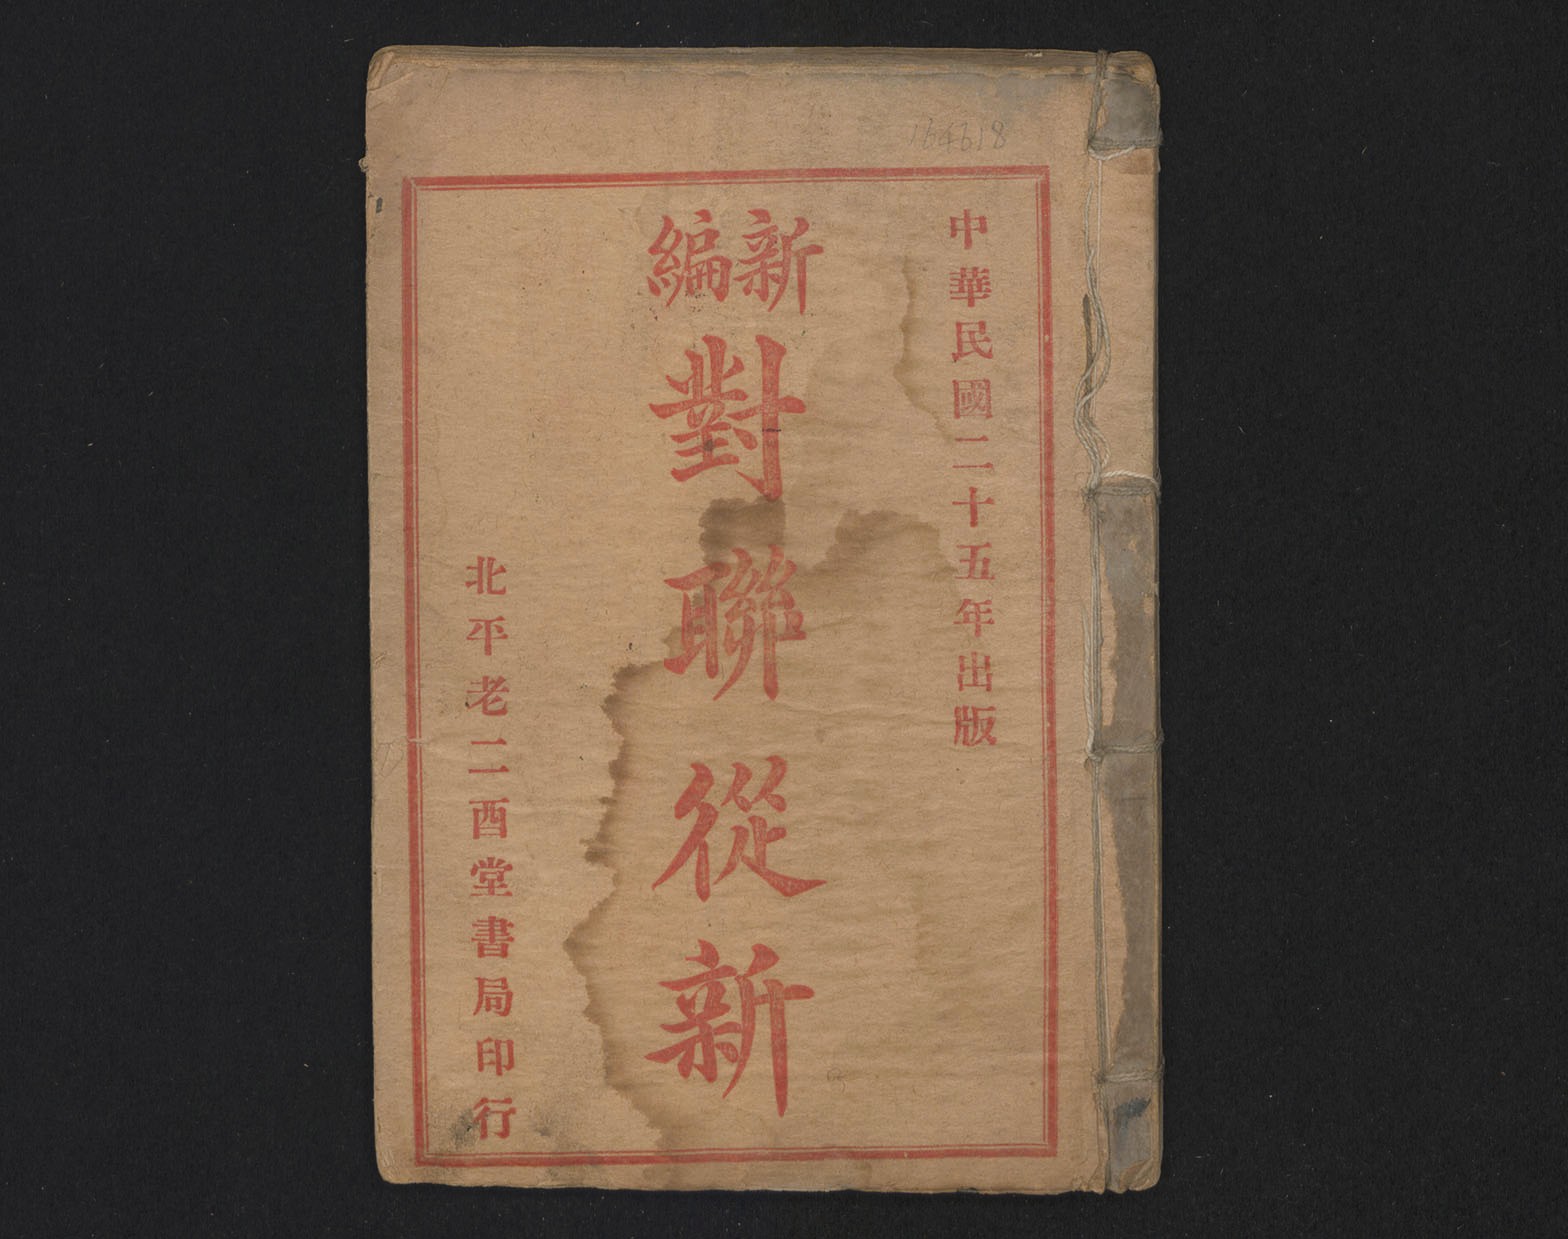 164618
中華民國二十五年出版
新編
對聯從新
北平老二酉堂書局印行